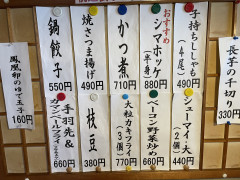 長芋の千切り
330円
子持ちししゃも
(4尾)
490円
おすすめ
シマホッケ
(半身)
880円
かつ煮
710円
焼さつま揚げ
490円
鍋餃子
550円
シューマイ・大
(2個)
440円
ベーコン野菜炒め
660円
大粒カキフライ
(3個)
770円
枝豆
380円
手羽先&
660円
鳳凰卵のゆで玉子
160円